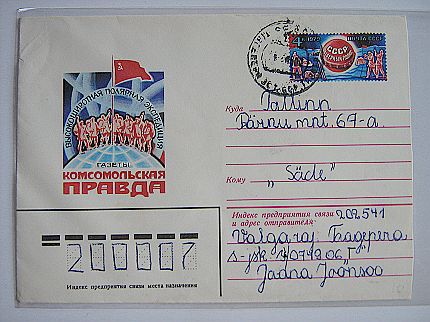 ВЫСОКОШИРОТНАЯ ПОЛЯРНАЯ ЭКСПЕДИЦИЯ
ГАЗЕТЫ
КОМСОМОЛЬСКАЯ
ПРАВДА
1979 ПОЧТА СССР
СССР
Куда Tallinn
Pärnu mnt. 67-a
Кому „Säde"
Индекс предприятия связи и адрес отправителя 202541
Valga raj.
200007
Индекс предприятия связи места назначения